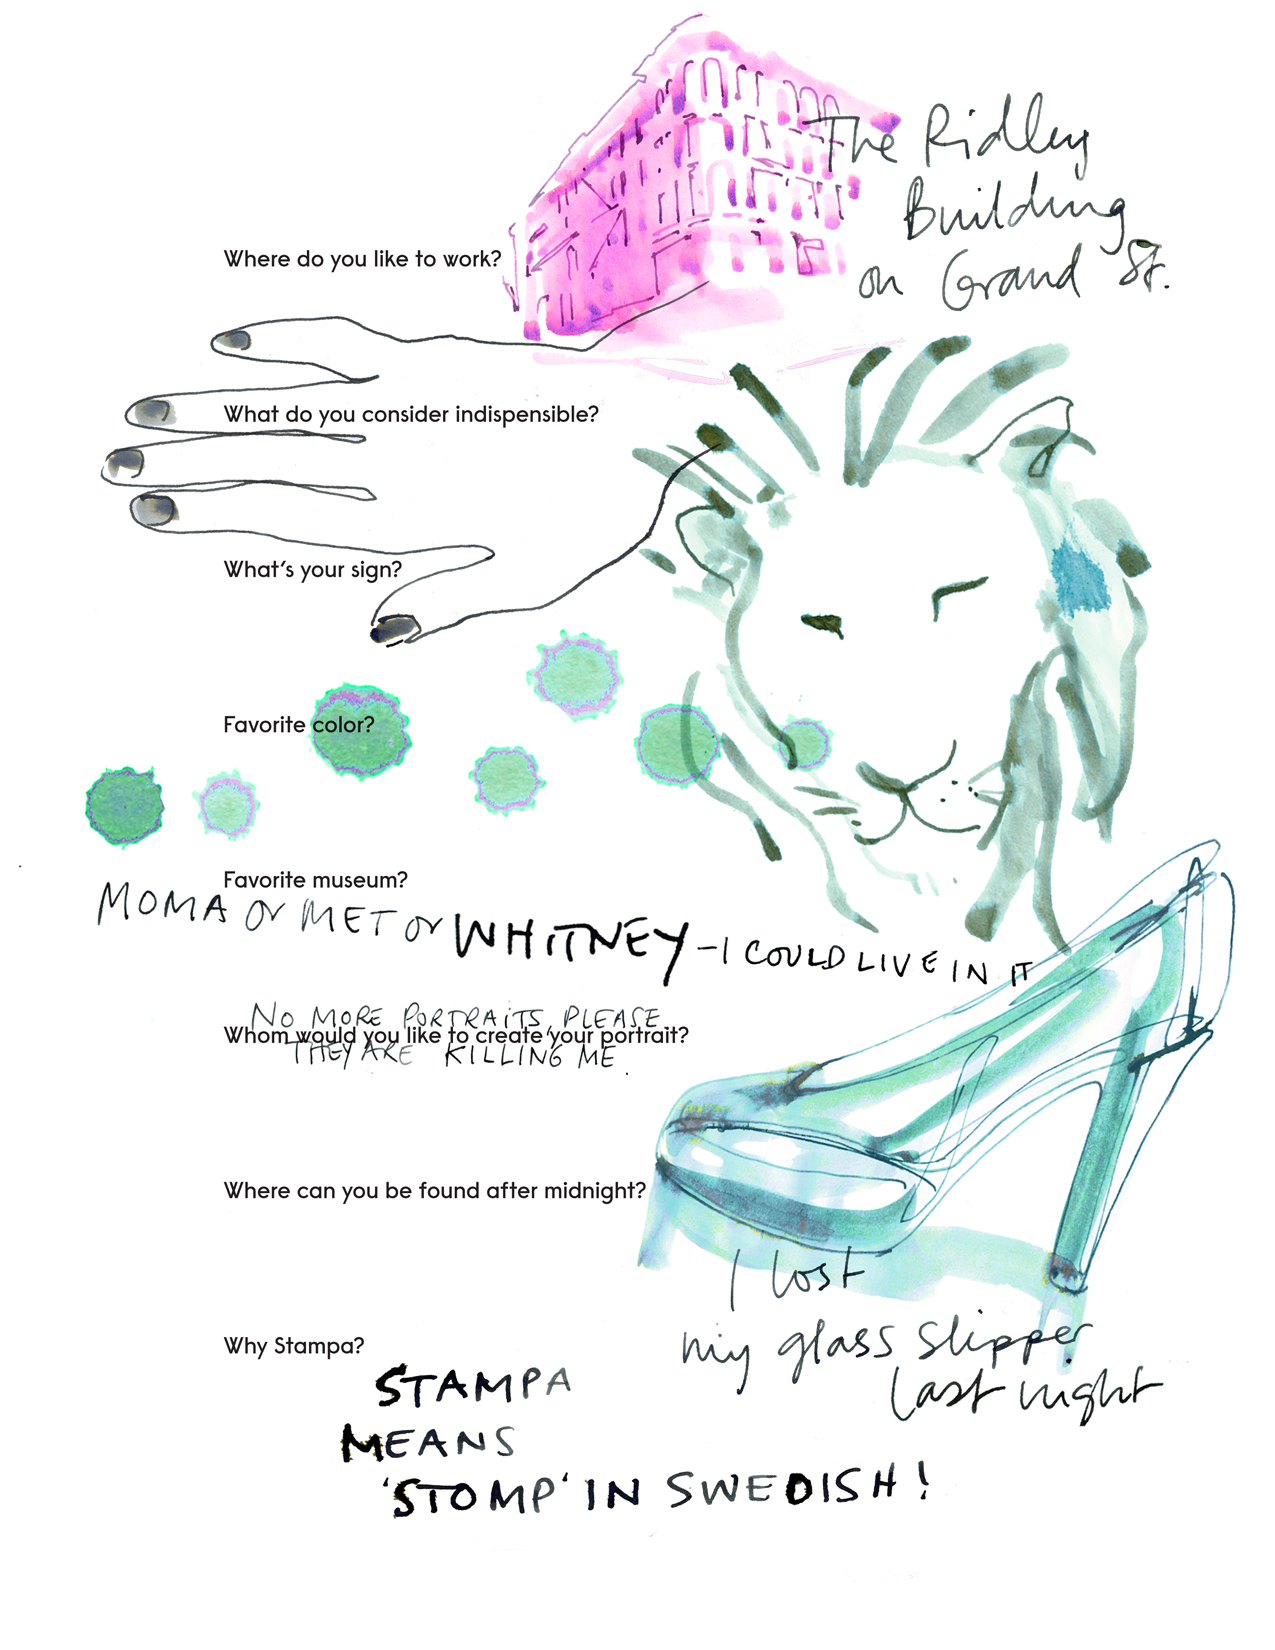 The Ridley
Building
on Grand St.
Where do you like to work?
What do you consider indispensible?
What's your sign?
Favorite color?
Favorite museum?
MOMA or MET or WHITNEY - I COULD LIVE IN IT
NO MORE PORTRAITS, PLEASE
Whom would you like to create your portrait?
THEY ARE KILLING ME.
Where can you be found after midnight?
I lost
my glass slipper
last night
Why Stampa?
STAMPA
MEANS
'STOMP' IN SWEDISH!